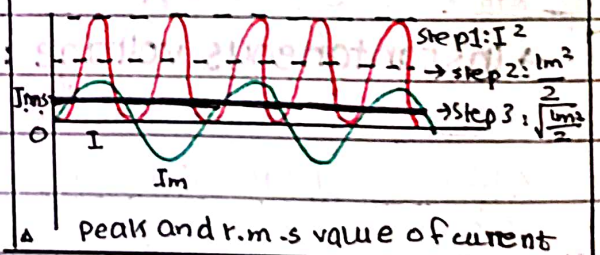 Step1: I²
→ step 2: Im²/2
Irms
→ Step 3: √Im²/2
O
I
Im
peak and r.m.s value of current